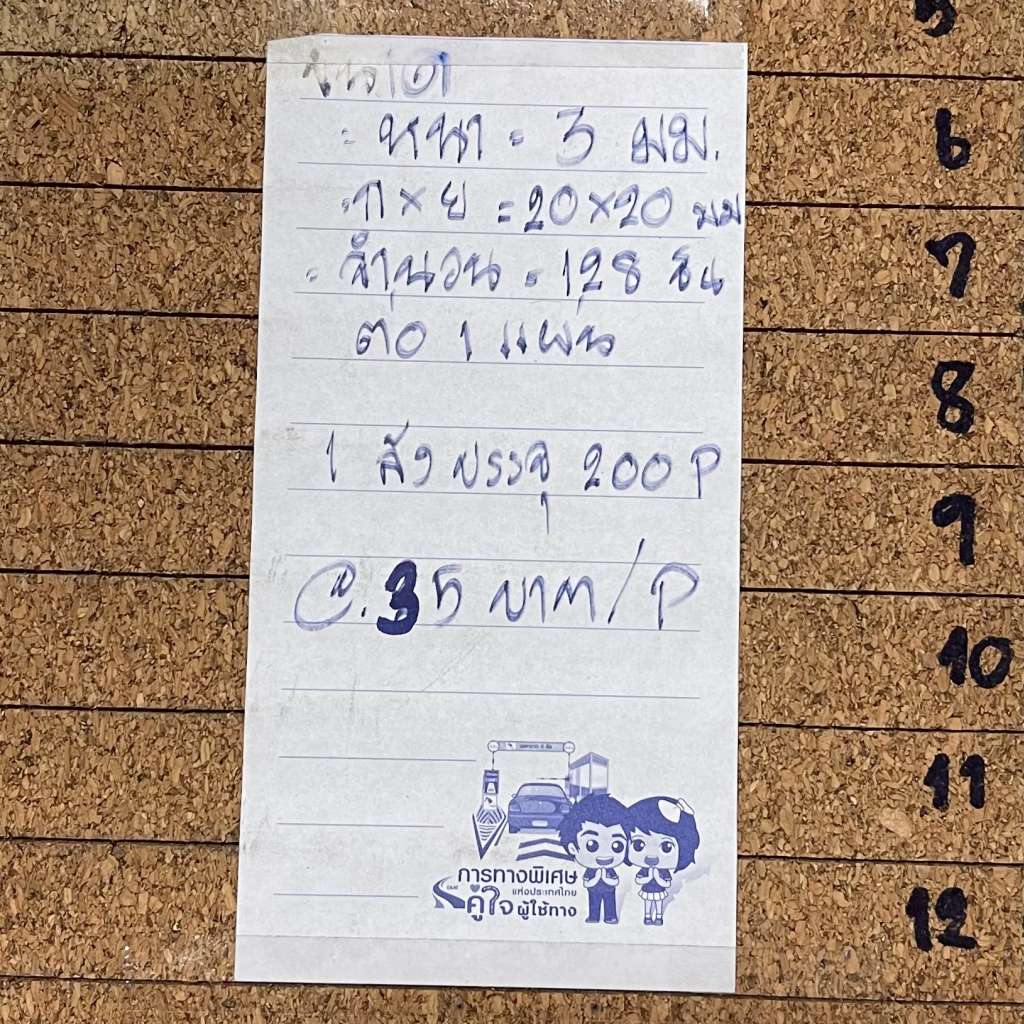 - หนา = 3 มม.
- ก x ย = 20x20 มม
- จำนวน = 128 ชิ้น
ต่อ 1 แผ่น
1 ลัง บรรจุ 200 P
@. 35 บาท/P
การทางพิเศษ
แห่งประเทศไทย
คู่ใจ ผู้ใช้ทาง
5
6
7
8
9
10
11
12